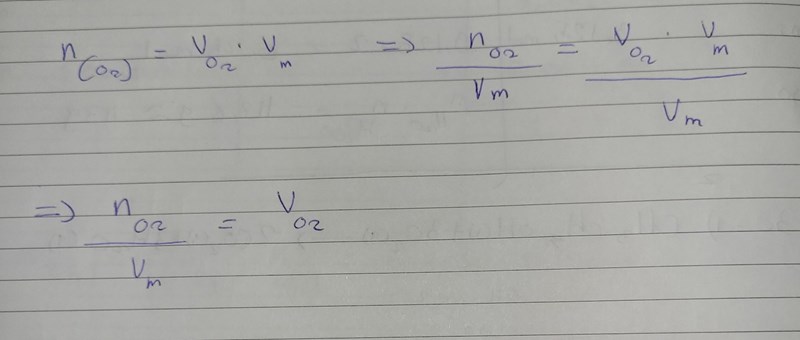 n(O2) = VO2 · Vm => nO2/Vm = VO2 · Vm/Vm
=> nO2/Vm = VO2